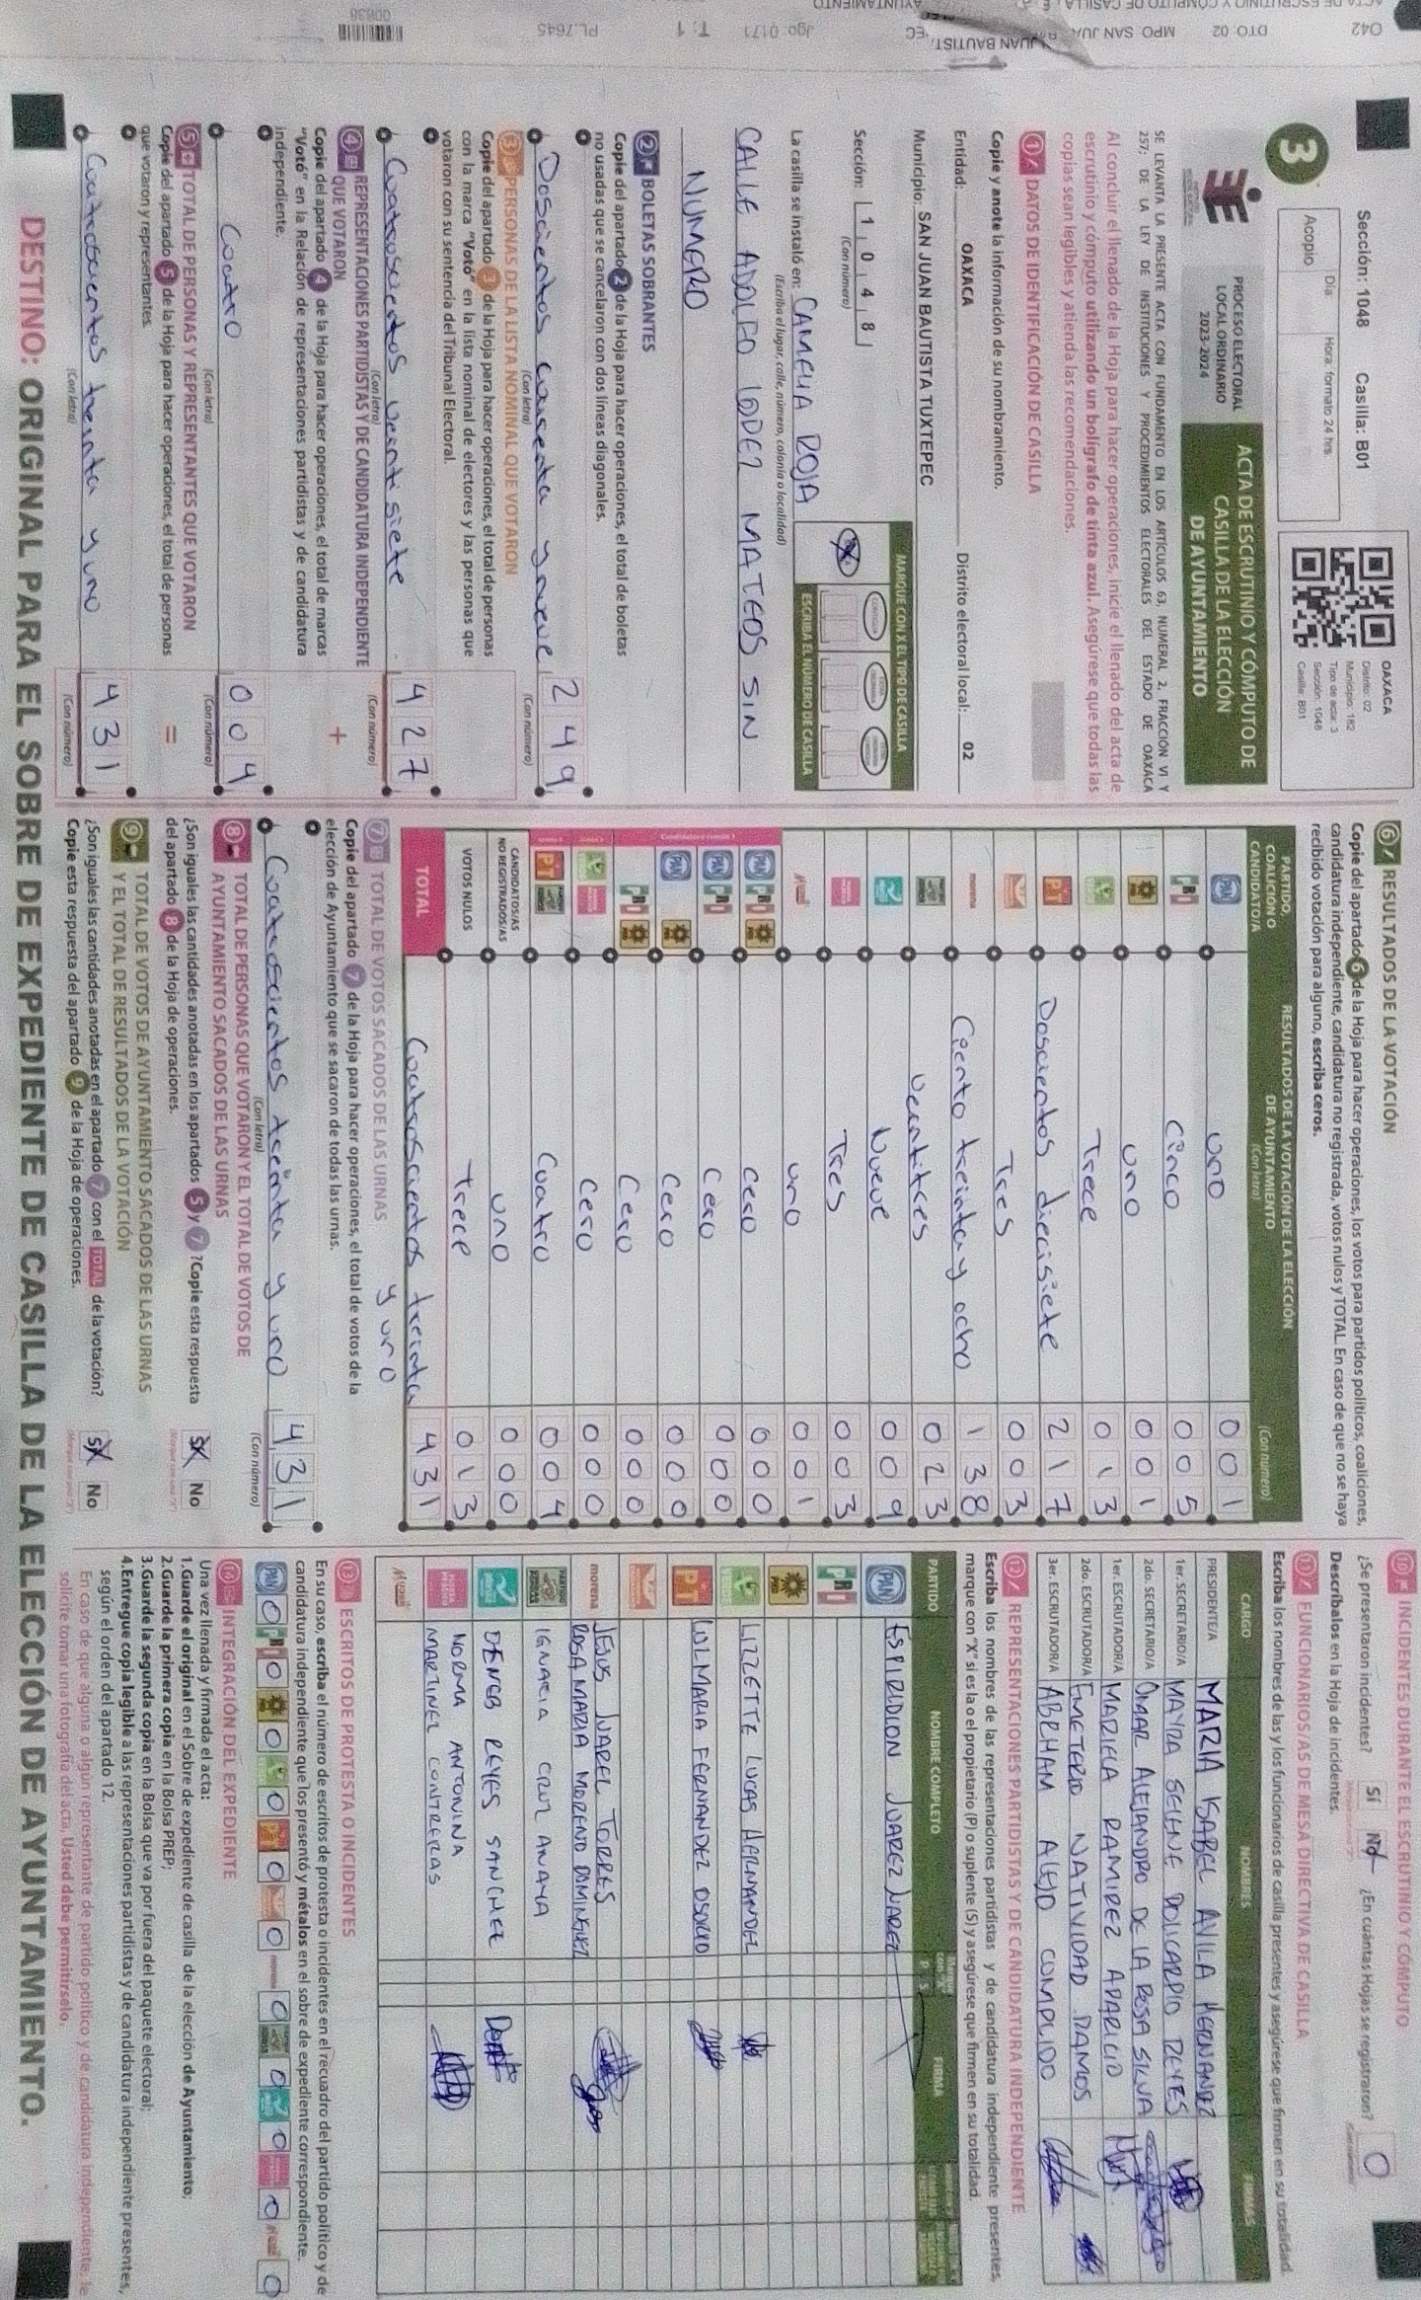 Sección: 1048 Casilla: B01
Día Hora: formato 24 hrs.
Acopio
OAXACA
Distrito: 02
Municipio: 182
Tipo de acta: 3
Sección: 1048
Casilla: B01
3
PROCESO ELECTORAL
LOCAL ORDINARIO
2023-2024
ACTA DE ESCRUTINIO Y CÓMPUTO DE
CASILLA DE LA ELECCIÓN
DE AYUNTAMIENTO
SE LEVANTA LA PRESENTE ACTA CON FUNDAMENTO EN LOS ARTÍCULOS 63, NUMERAL 2, FRACCIÓN VI Y
257; DE LA LEY DE INSTITUCIONES Y PROCEDIMIENTOS ELECTORALES DEL ESTADO DE OAXACA
Al concluir el llenado de la Hoja para hacer operaciones, inicie el llenado del acta de
escrutinio y cómputo utilizando un bolígrafo de tinta azul. Asegúrese que todas las
copias sean legibles y atienda las recomendaciones.
1 DATOS DE IDENTIFICACIÓN DE CASILLA
Copie y anote la información de su nombramiento.
Entidad: OAXACA Distrito electoral local: 02
Municipio: SAN JUAN BAUTISTA TUXTEPEC
Sección: 1 0 4 8
(Con número)
MARQUE CON X EL TIPO DE CASILLA
ESCRIBA EL NÚMERO DE CASILLA
La casilla se instaló en: CAMELIA ROJA
(Escriba el lugar, calle, número, colonia o localidad)
CALLE ADOLFO LOPEZ MATEOS SIN
NUMERO
2 BOLETAS SOBRANTES
Copie del apartado 2 de la Hoja para hacer operaciones, el total de boletas
no usadas que se cancelaron con dos líneas diagonales.
Doscientos cuarenta y nueve 2 4 9
(Con letra) (Con número)
3 PERSONAS DE LA LISTA NOMINAL QUE VOTARON
Copie del apartado 3 de la Hoja para hacer operaciones, el total de personas
con la marca "Votó" en la lista nominal de electores y las personas que
votaron con su sentencia del Tribunal Electoral.
Cuatrocientos veintisiete 4 2 7
(Con letra) (Con número)
4 REPRESENTACIONES PARTIDISTAS Y DE CANDIDATURA INDEPENDIENTE
QUE VOTARON
Copie del apartado 4 de la Hoja para hacer operaciones, el total de marcas
"Votó" en la Relación de representaciones partidistas y de candidatura
independiente.
+
Cuatro 0 0 4
(Con letra) (Con número)
5 TOTAL DE PERSONAS Y REPRESENTANTES QUE VOTARON
Copie del apartado 5 de la Hoja para hacer operaciones, el total de personas
que votaron y representantes.
=
Cuatrocientos treinta y uno 4 3 1
(Con letra) (Con número)
6 RESULTADOS DE LA VOTACIÓN
Copie del apartado 6 de la Hoja para hacer operaciones, los votos para partidos políticos, coaliciones,
candidatura independiente, candidatura no registrada, votos nulos y TOTAL. En caso de que no se haya
recibido votación para alguno, escriba ceros.
PARTIDO, COALICIÓN O CANDIDATO/A RESULTADOS DE LA VOTACIÓN DE LA ELECCIÓN DE AYUNTAMIENTO (Con letra) (Con número)
PAN uno 0 0 1
PRI cinco 0 0 5
PRD uno 0 0 1
Trece 0 1 3
PT Doscientos diecisiete 2 1 7
Tres 0 0 3
morena Ciento treinta y ocho 1 3 8
veintitres 0 2 3
Nueve 0 0 9
Tres 0 0 3
uno 0 0 1
PAN PRI PRD cero 0 0 0
PAN PRI cero 0 0 0
PAN PRD cero 0 0 0
PRI PRD cero 0 0 0
cero 0 0 0
PT cuatro 0 0 4
CANDIDATOS/AS NO REGISTRADOS/AS uno 0 0 0
VOTOS NULOS trece 0 1 3
TOTAL Cuatroscientos treinta y uno 4 3 1
7 TOTAL DE VOTOS SACADOS DE LAS URNAS
Copie del apartado 7 de la Hoja para hacer operaciones, el total de votos de la
elección de Ayuntamiento que se sacaron de todas las urnas.
Cuatrocientos treinta y uno 4 3 1
(Con letra) (Con número)
8 TOTAL DE PERSONAS QUE VOTARON Y EL TOTAL DE VOTOS DE
AYUNTAMIENTO SACADOS DE LAS URNAS
¿Son iguales las cantidades anotadas en los apartados 5 y 7 ? Copie esta respuesta
del apartado 8 de la Hoja de operaciones.
Sí No
9 TOTAL DE VOTOS DE AYUNTAMIENTO SACADOS DE LAS URNAS
Y EL TOTAL DE RESULTADOS DE LA VOTACIÓN
¿Son iguales las cantidades anotadas en el apartado 7 con el TOTAL de la votación?
Copie esta respuesta del apartado 9 de la Hoja de operaciones.
Sí No
10 INCIDENTES DURANTE EL ESCRUTINIO Y CÓMPUTO
¿Se presentaron incidentes? Sí No ¿En cuántas Hojas se registraron? 0
Descríbalos en la Hoja de incidentes.
11 FUNCIONARIOS/AS DE MESA DIRECTIVA DE CASILLA
Escriba los nombres de las y los funcionarios de casilla presentes y asegúrese que firmen en su totalidad.
CARGO NOMBRES FIRMAS
PRESIDENTE/A MARIA ISABEL AVILA HERNANDEZ
1er. SECRETARIO/A MAYRA SELENE POLICARPIO REYES
2do. SECRETARIO/A OMAR ALEJANDRO DE LA ROSA SILVA
1er. ESCRUTADOR/A MARIELA RAMIREZ APARICIO
2do. ESCRUTADOR/A EMETERIO NATIVIDAD RAMOS
3er. ESCRUTADOR/A ABRHAM ALEJO COMPLIDO
12 REPRESENTACIONES PARTIDISTAS Y DE CANDIDATURA INDEPENDIENTE
Escriba los nombres de las representaciones partidistas y de candidatura independiente presentes,
marque con "X" si es la o el propietario (P) o suplente (S) y asegúrese que firmen en su totalidad.
PARTIDO NOMBRE COMPLETO P S FIRMA
PAN ESPIRIDION JUAREZ JUAREZ
PRI
PRD
LIZZETTE LUCAS HERNANDEZ
PT LULMARIA FERNANDEZ OSORIO
morena JESUS JUAREZ TORRES
ROSA MARIA MORENO DOMINGUEZ
IGNACIA CRUZ ANAYA
DENEB REYES SANCHEZ
NORMA ANTONINA
MARTINEZ CONTRERAS
13 ESCRITOS DE PROTESTA O INCIDENTES
En su caso, escriba el número de escritos de protesta o incidentes en el recuadro del partido político y de
candidatura independiente que los presentó y métalos en el sobre de expediente correspondiente.
PAN 0 PRI 0 PRD 0 0 PT 0 0 0 0 0 0 0
14 INTEGRACIÓN DEL EXPEDIENTE
Una vez llenada y firmada el acta:
1.Guarde el original en el Sobre de expediente de casilla de la elección de Ayuntamiento;
2.Guarde la primera copia en la Bolsa PREP;
3.Guarde la segunda copia en la Bolsa que va por fuera del paquete electoral;
4.Entregue copia legible a las representaciones partidistas y de candidatura independiente presentes,
según el orden del apartado 12.
En caso de que alguna o algún representante de partido político y de candidatura independiente, le
solicite tomar una fotografía del acta. Usted debe permitírselo.
DESTINO: ORIGINAL PARA EL SOBRE DE EXPEDIENTE DE CASILLA DE LA ELECCIÓN DE AYUNTAMIENTO.